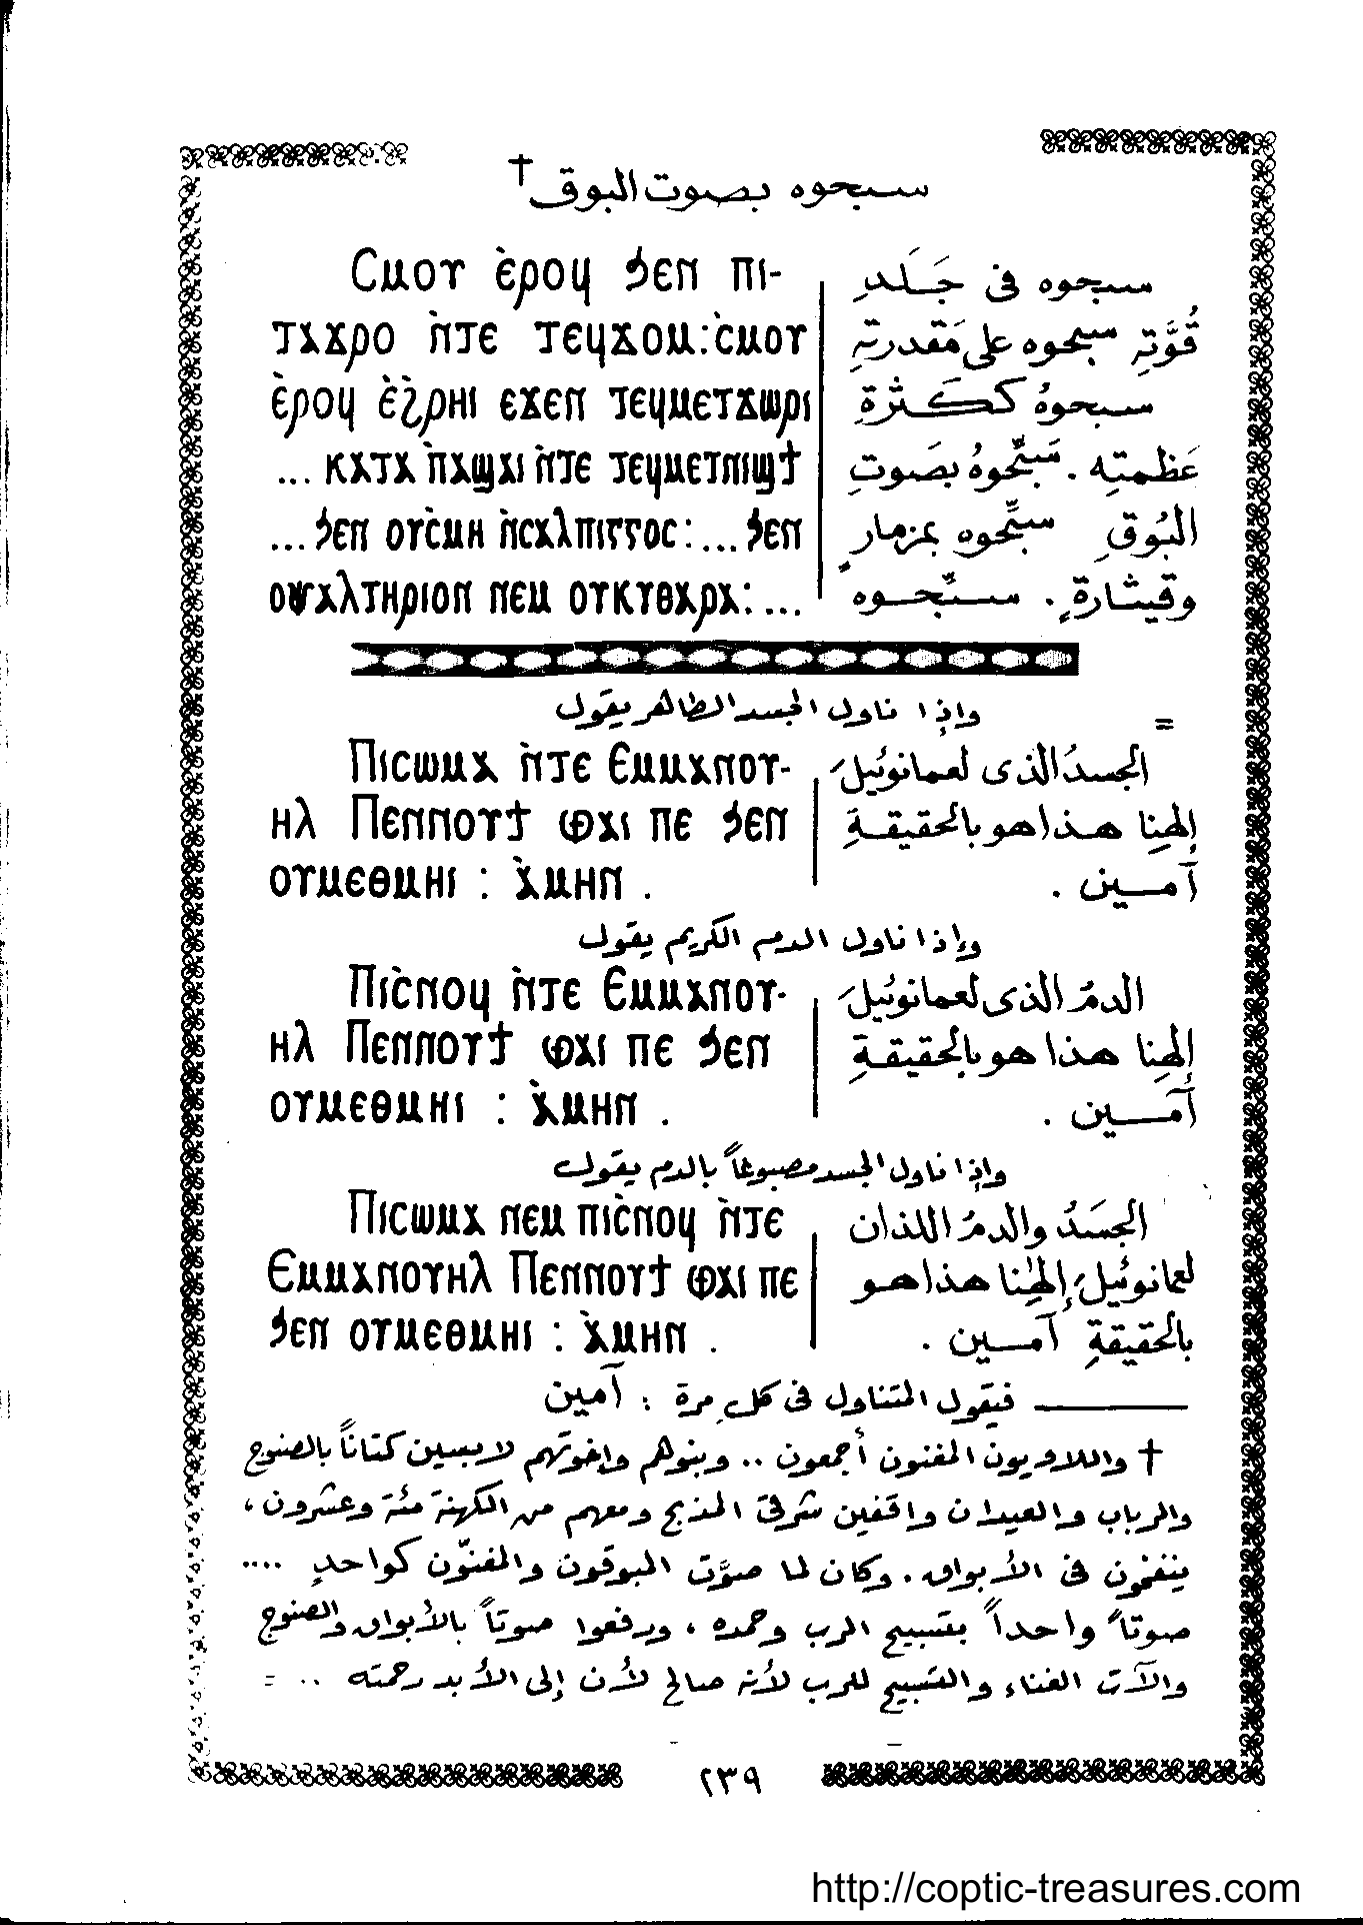 سبحوه بصوت البوق †
Ⲥⲙⲟⲩ ⲉ̀ⲣⲟϥ ϧⲉⲛ ⲡⲓ-
ⲧⲁϫⲣⲟ ⲛ̀ⲧⲉ ⲧⲉϥϫⲟⲙ: ⲥ̀ⲙⲟⲩ
ⲉ̀ⲣⲟϥ ⲉ̀ϩ̀ⲣⲏⲓ ⲉϫⲉⲛ ⲧⲉϥⲙⲉⲧϫⲱⲣⲓ
... ⲕⲁⲧⲁ ⲡ̀ⲁϣⲁⲓ ⲛ̀ⲧⲉ ⲧⲉϥⲙⲉⲧⲛⲓϣϯ
... ϧⲉⲛ ⲟⲩⲥ̀ⲙⲏ ⲛ̀ⲥⲁⲗⲡⲓⲅⲅⲟⲥ: ... ϧⲉⲛ
ⲟⲯⲁⲗⲧⲏⲣⲓⲟⲛ ⲛⲉⲙ ⲟⲩⲕⲩⲑⲁⲣⲁ: ...
سبحوه فى جَلَدِ
قُوَّتِهِ سبحوه على مَقدرتِهِ
سبحوهُ ككَثرةِ
عَظمتِه . سَبِّحوهُ بصَوتِ
البُوقِ سبِّحوه بمزمارٍ
وقيثارةٍ . سبّحوه
واذا ناول الجسد الطاهر يقول
=
Ⲡⲓⲥⲱⲙⲁ ⲛ̀ⲧⲉ Ⲉⲙⲙⲁⲛⲟⲩ-
ⲏⲗ Ⲡⲉⲛⲛⲟⲩϯ ⲫⲁⲓ ⲡⲉ ϧⲉⲛ
ⲟⲩⲙⲉⲑⲙⲏⲓ : ⲁ̀ⲙⲏⲛ .
الجسدُ الذى لعمانوئيلَ
إلهِنا هذا هو بالحقيقةِ
آمين .
وإذا ناول الدم الكريم يقول
Ⲡⲓⲥ̀ⲛⲟϥ ⲛ̀ⲧⲉ Ⲉⲙⲙⲁⲛⲟⲩ-
ⲏⲗ Ⲡⲉⲛⲛⲟⲩϯ ⲫⲁⲓ ⲡⲉ ϧⲉⲛ
ⲟⲩⲙⲉⲑⲙⲏⲓ : ⲁ̀ⲙⲏⲛ .
الدمُ الذى لعمانوئيلَ
إلهِنا هذا هو بالحقيقةِ
آمَين .
وإذا ناول الجسد مصبوغاً بالدم يقول
Ⲡⲓⲥⲱⲙⲁ ⲛⲉⲙ ⲡⲓⲥ̀ⲛⲟϥ ⲛ̀ⲧⲉ
Ⲉⲙⲙⲁⲛⲟⲩⲏⲗ Ⲡⲉⲛⲛⲟⲩϯ ⲫⲁⲓ ⲡⲉ
ϧⲉⲛ ⲟⲩⲙⲉⲑⲙⲏⲓ : ⲁ̀ⲙⲏⲛ .
الجسَدُ والدمُ اللذان
لعمانوئيلَ إلهِنا هذا هو
بالحقيقةِ آمين .
فيقول المتناول فى كل مرة : آمين
† واللاويون المغنون أجمعون .. وبنوهم وإخوتهم لابسين كتاناً بالصنوج
والرباب والعيدان واقفين شرقى المذبح ومعهم من الكهنة مئة وعشرون ،
ينفخون فى الأبواق . وكان لما صوَّت المبوقون والمغنّون كواحدٍ ....
صوتاً واحداً بتسبيح الرب وحمده ، ورفعوا صوتاً بالأبواق والصنوج
وآلات الغناء والتسبيح للرب لأنه صالح لأن إلى الأبد رحمته .. =
٢٣٩
http://coptic-treasures.com